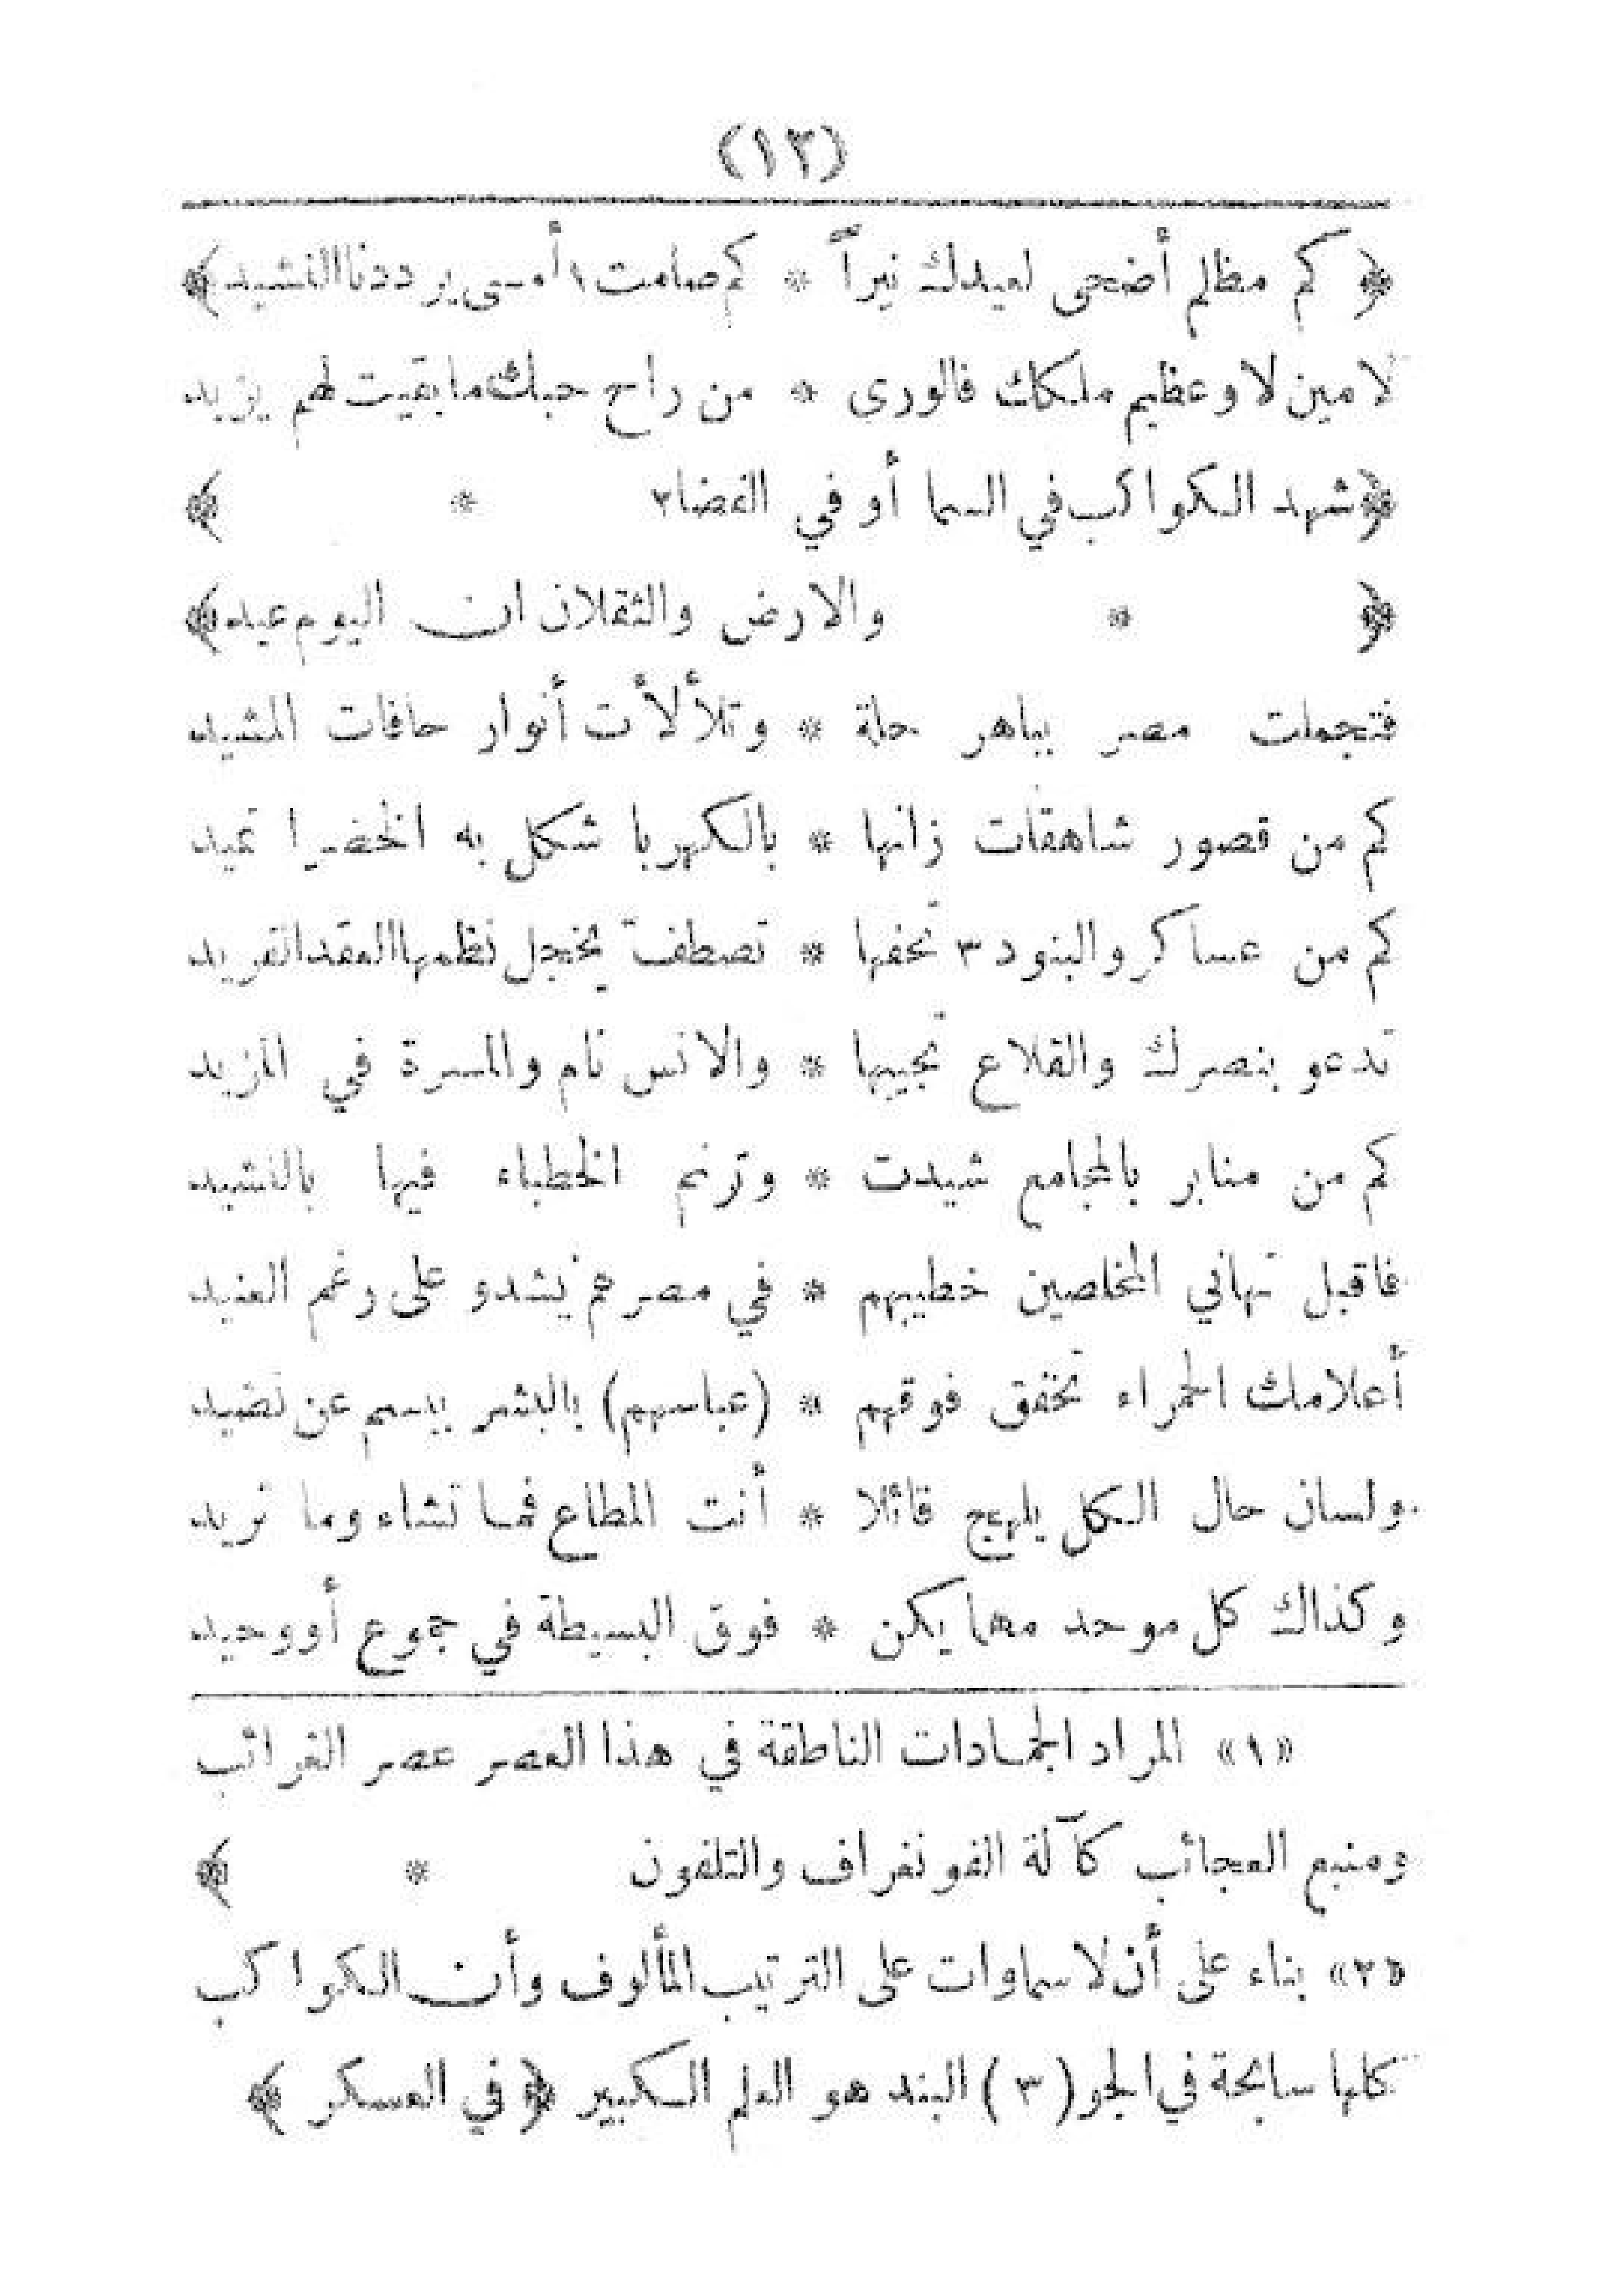 (١٣)
﴿ كم مظلم أضحى لعيدك نيراً * كم صامت١ أمسى يرددنا النشيد ﴾
لا مين لا وعظيم ملكك فالورى * من راح حبك ما بقيت لهم يزيد
﴿ شهد الكواكب في السما أو في الفضا٢ * ﴾
﴿ * والارض والثقلان ان اليوم عيد ﴾
فتجملت مصر بباهر حلة * وتلألأت أنوار حافات المشيد
كم من قصور شاهقات زانها * بالكهربا شكل به الخضرا تميد
كم من عساكر والبنود٣ تحفها * تصطف يخجل نظمها العقد الفريد
تدعو بنصرك والقلاع تجيبها * والانس نام والمسرة في المزيد
كم من منابر بالمجامع شيدت * وترنم الخطباء فيها بالنشيد
فاقبل تهاني المخلصين خطيبهم * في مصرهم يشدو على رغم العنيد
أعلامك الحمراء تخفق فوقهم * (عباسهم) بالبشر يبسم عن نضيد
ولسان حال الكل يلهج قائلا * أنت المطاع فما تشاء وما تريد
وكذاك كل موحد مهما يكن * فوق البسيطة في جموع أو وحيد
«١» المراد الجمادات الناطقة في هذا العصر عصر الغرائب
ومنبع العجائب كآلة الفونغراف والتلفون * ﴾
«٢» بناء على أن لا سماوات على الترتيب المألوف وأن الكواكب
كلها سابحة في الجو (٣) البند هو العلم الكبير ﴿ في العسكر ﴾